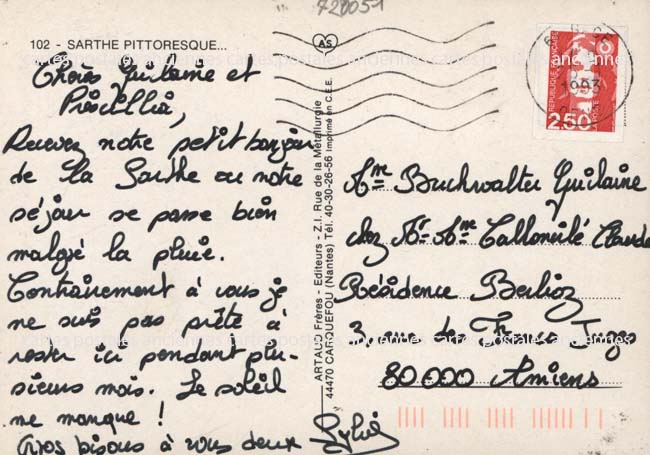 720051
102 - SARTHE PITTORESQUE...
Chères Guilaine et
Priscillia,
Recevez notre petit bonjour
de la Sarthe ou notre
séjour se passe bien
malgré la pluie.
Contrairement à vous je
ne suis pas prête à
rester ici pendant plu-
sieurs mois. Le soleil
me manque !
Gros bisous à vous deux
Sylvie
AS
ARTAUD Frères - Editeurs - Z.I. Rue de la Métallurgie
44470 CARQUEFOU (Nantes) Tél. 40-30-26-56 Imprimé en C.E.E.
REPUBLIQUE FRANÇAISE
LA POSTE
2,50
1993
Mme Buchwalter Guilaine
chez Mr Mme Calloneilé Claude
Résidence Berlioz
3 rue de
80000 Amiens
cartes postales anciennes